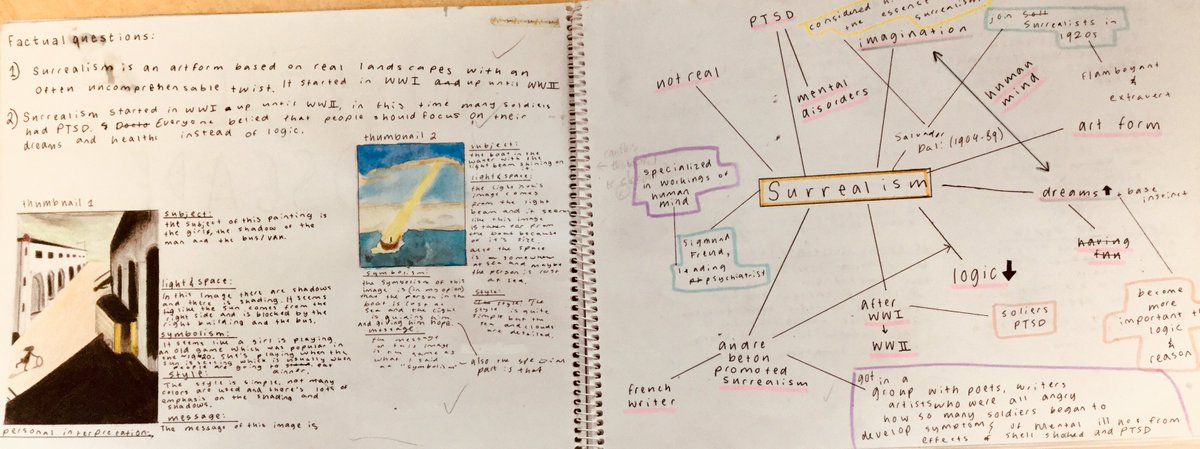 Factual questions:
1) Surrealism is an artform based on real landscapes with an
often uncomprehensable twist. It started in WWI and up until WWII
2) Surrealism started in WWI up until WWII, in this time many soldiers
had PTSD. Everyone belied that people should focus on their
dreams and health instead of logic.
thumbnail 1
subject:
the subject of this painting is
the girls, the shadow of the
man and the bus/van.
light & space:
In this image there are shadows
and there is shading. It seems
like the sun comes from the
right side and is blocked by the
right building and the bus.
symbolism:
It seems like a girl is playing
an old game which was popular in
the 1920. She's playing when the
sun is setting which is usually when
people are going to eat
dinner.
style:
The style is simple, not many
colors are used and there's lots of
emphasis on the shading and
shadows.
message:
The message of this image is
personal interpretation,
thumbnail 2
subject:
the boat in the
water with the
light beam shining on
it.
light & space:
the light
image comes
from the light
beam and it seems
like this image
is taken far from
the boat because
of it's size.
also the space
is somewhere
at sea and maybe
the person is lost
at sea.
symbolism:
the symbolism of this
image is (in my opion)
that the person in the
boat is lost at
sea and the light
is guiding him
and giving him hope.
message
the message
of this image
is the same as
what I said
in "symbolism"
style:
the style is quite
simple but the
sea and clouds
are detailed.
also the
part is that
PTSD
considered
the essence
surrealism
imagination
join Surrealists in
1920s
flamboyant
&
extravert
not real
mental
disorders
human
mind
art form
Salvador
Dali (1904-89)
specialized
in workings of
human
mind
Surrealism
dreams + base
instinct
having
fun
sigmund
Freud,
leading
psychiatrist
logic
After
WWI
WWII
soliers
PTSD
become
more
important th
logic
&
reason
andre
beton
promoted
surrealism
french
writer
got in a
group with poets, writers
artists who were all angry
how so many soldiers began to
develop symptoms of mental illness from
effects of shell shocked and PTSD